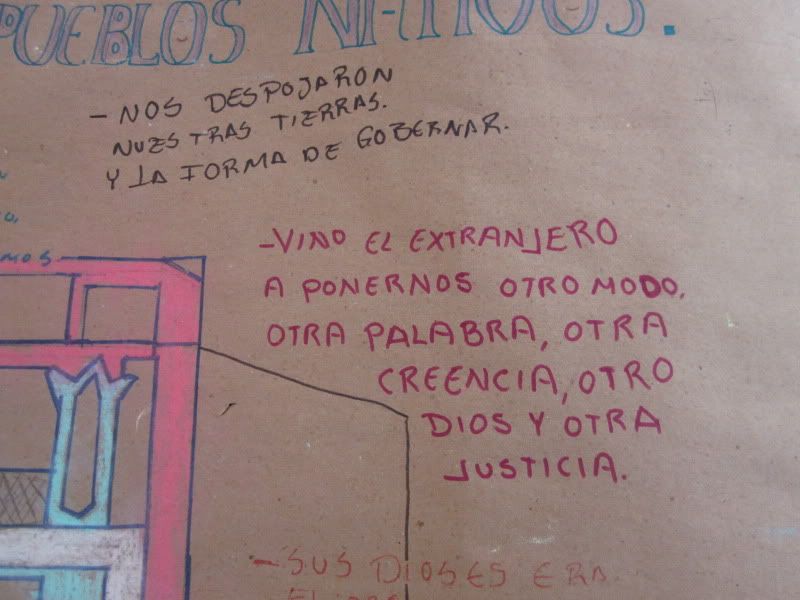 PUEBLOS NATIVOS.
- NOS DESPOJARON
NUESTRAS TIERRAS.
Y LA FORMA DE GOBERNAR.
MOS.
-VINO EL EXTRANJERO
A PONERNOS OTRO MODO,
OTRA PALABRA, OTRA
CREENCIA, OTRO
DIOS Y OTRA
JUSTICIA.
-SUS DIOSES ERA